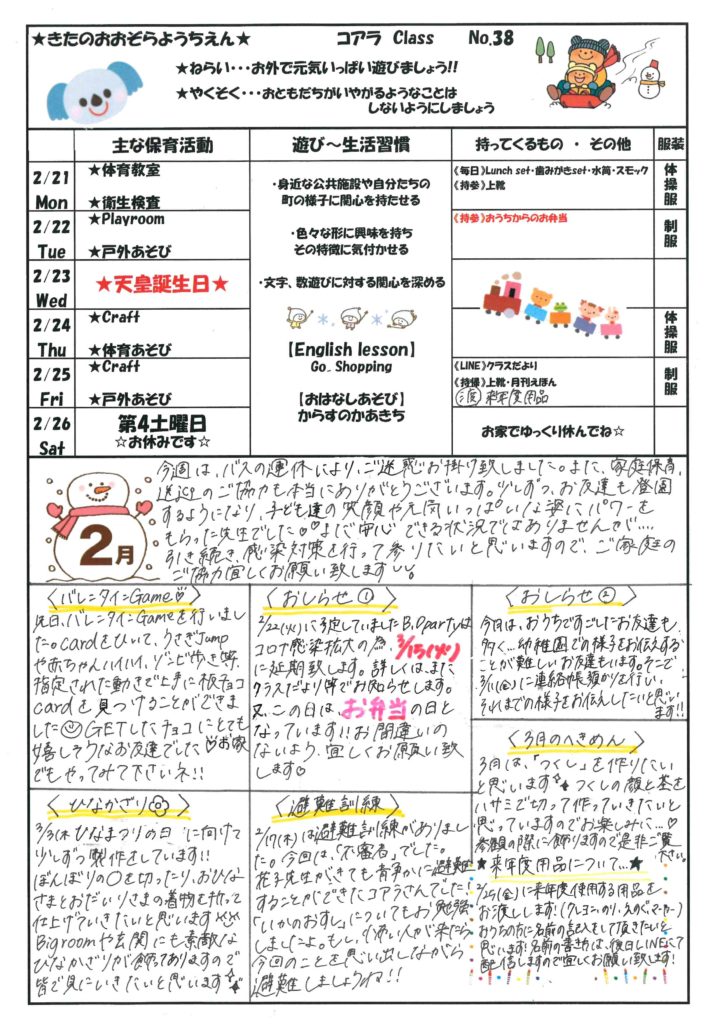 ★きたのおおぞらようちえん★　コアラ Class　No.38
★ねらい・・・お外で元気いっぱい遊びましょう!!
★やくそく・・・おともだちがいやがるようなことは
しないようにしましょう
主な保育活動　遊び～生活習慣　持ってくるもの ・ その他　服装
2/21 Mon
★体育教室
★衛生検査
《毎日》Lunch set・歯みがきset・水筒・スモック
《持参》上靴
体操服
2/22 Tue
★Playroom
★戸外あそび
《持参》おうちからのお弁当
制服
2/23 Wed
★天皇誕生日★
2/24 Thu
★Craft
★体育あそび
体操服
2/25 Fri
★Craft
★戸外あそび
《LINE》クラスだより
《持帰》上靴・月刊えほん
来年度用品
制服
2/26 Sat
第4土曜日
☆お休みです☆
お家でゆっくり休んでね☆
・身近な公共施設や自分たちの
町の様子に関心を持たせる
・色々な形に興味を持ち
その特徴に気付かせる
・文字、数遊びに対する関心を深める
【English lesson】
Go Shopping
【おはなしあそび】
からすのかあきち
2月
今週は、バスの運休により、ご迷惑お掛け致しました。また、家庭保育、
送迎のご協力も本当にありがとうございます。少しずつ、お友達も登園
するようになり、子ども達の笑顔や元気いっぱいな姿にパワーを
もらった先生でした♡♡まだ安心できる状況ではありませんが…
引き続き、感染対策を行って参りたいと思いますので、ご家庭の
ご協力宜しくお願い致します
〈バレンタインGame♡〉
先日、バレンタインGameを行いまし
た。cardをひいて、うさぎJump
や赤ちゃんハイハイ、ゾンビ歩き等、
指定された動きで上手に板チョコ
cardを見つけることができま
した GETしたチョコにとても
嬉しそうなお友達でした♡お家
でもやってみて下さいネ!!
〈おしらせ①〉
2/22(火)に予定していましたB.D partyは
コロナ感染拡大の為、3/15(火)
に延期致します。詳しくは、また
クラスだより等でお知らせします。
又、この日は、お弁当の日と
なっています!!お間違いの
ないよう、宜しくお願い致
します♡
〈おしらせ②〉
今月は、おうちですごしたお友達も
多く…幼稚園での様子をお伝えする
ことが難しいお友達もいます。そこで
3/11(金)に連絡帳預かりを行い、
それまでの様子をお伝えしたいと思い
ます!!
〈3月のへきめん〉
3月は、「つくし」を作りたい
と思います つくしの顔と茎を
ハサミで切って作っていきたいと
思っていますのでお楽しみに…♡
参観の際に飾りますので是非ご覧
下さい。
〈ひなかざり〉
3/3(木)ひなまつりの日に向けて
少しずつ製作をしています!!
ぼんぼりの○を切ったり、おひな
さまとおだいりさまの着物を折って
仕上げていきたいと思います
Big roomや玄関にも素敵な
ひなかざりが飾ってありますので
皆で見にいきたいと思います
〈避難訓練〉
2/17(木)は避難訓練がありまし
た。今回は、「不審者」でした。
花子先生がきても静かに避難
することができたコアラさんでした!
「いかのおすし」についてもお勉強
しましたよ。もし、怖い人が来たら
今回のことを思い出しながら
避難しましょうね!!
★来年度用品について…★
2/25(金)に来年度使用する用品を
お渡しします!(クレヨン、のり、えのぐ、マーカー)
おうちの方に名前の記入をして頂きたいと
思います!名前の書き方は、後日LINEにて
配信しますので宜しくお願い致します!